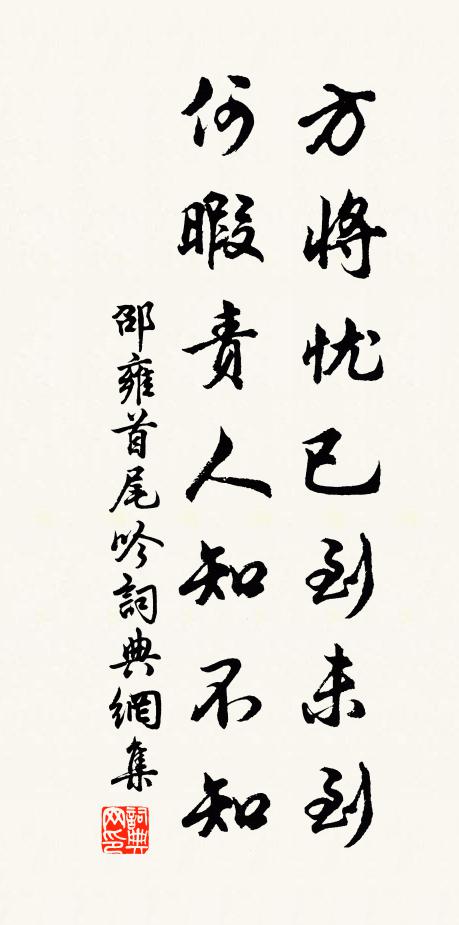 方将忧已到未到
何暇責人知不知
邵雍首尾吟詞典網集
詞典
网印